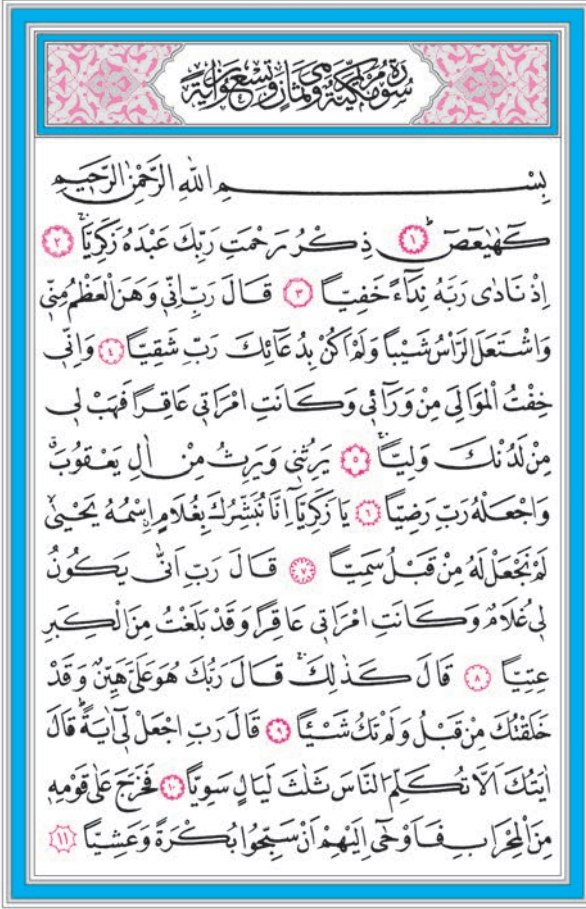 سورة مريم مكية وهي ثمان وتسعون آية
بِسْمِ اللهِ الرَّحْمٰنِ الرَّحِيمِ
كٓهٰيٰعٓصٓ ﴿١﴾ ذِكْرُ رَحْمَتِ رَبِّكَ عَبْدَهُ زَكَرِيَّاۚ ﴿٢﴾
اِذْ نَادٰى رَبَّهُ نِدَٓاءً خَفِيًّا ﴿٣﴾ قَالَ رَبِّ اِنّٖي وَهَنَ الْعَظْمُ مِنّٖي
وَاشْتَعَلَ الرَّاْسُ شَيْباً وَلَمْ اَكُنْ بِدُعَٓائِكَ رَبِّ شَقِيًّا ﴿٤﴾ وَاِنّٖي
خِفْتُ الْمَوَالِيَ مِنْ وَرَٓائٖي وَكَانَتِ امْرَاَتٖي عَاقِراً فَهَبْ لٖي
مِنْ لَدُنْكَ وَلِيًّاۙ ﴿٥﴾ يَرِثُنٖي وَيَرِثُ مِنْ اٰلِ يَعْقُوبَۗ
وَاجْعَلْهُ رَبِّ رَضِيًّا ﴿٦﴾ يَا زَكَرِيَّٓا اِنَّا نُبَشِّرُكَ بِغُلَامٍۨ اسْمُهُ يَحْيٰىۙ
لَمْ نَجْعَلْ لَهُ مِنْ قَبْلُ سَمِيًّا ﴿٧﴾ قَالَ رَبِّ اَنّٰى يَكُونُ
لٖي غُلَامٌ وَكَانَتِ امْرَاَتٖي عَاقِراً وَقَدْ بَلَغْتُ مِنَ الْكِبَرِ
عِتِيًّا ﴿٨﴾ قَالَ كَذٰلِكَۚ قَالَ رَبُّكَ هُوَ عَلَيَّ هَيِّنٌ وَقَدْ
خَلَقْتُكَ مِنْ قَبْلُ وَلَمْ تَكُ شَيْـٔاً ﴿٩﴾ قَالَ رَبِّ اجْعَلْ لٖٓي اٰيَةًۜ قَالَ
اٰيَتُكَ اَلَّا تُكَلِّمَ النَّاسَ ثَلٰثَ لَيَالٍ سَوِيًّا ﴿١٠﴾ فَخَرَجَ عَلٰى قَوْمِهٖ
مِنَ الْمِحْرَابِ فَاَوْحٰٓى اِلَيْهِمْ اَنْ سَبِّحُوا بُكْرَةً وَعَشِيًّا ﴿١١﴾